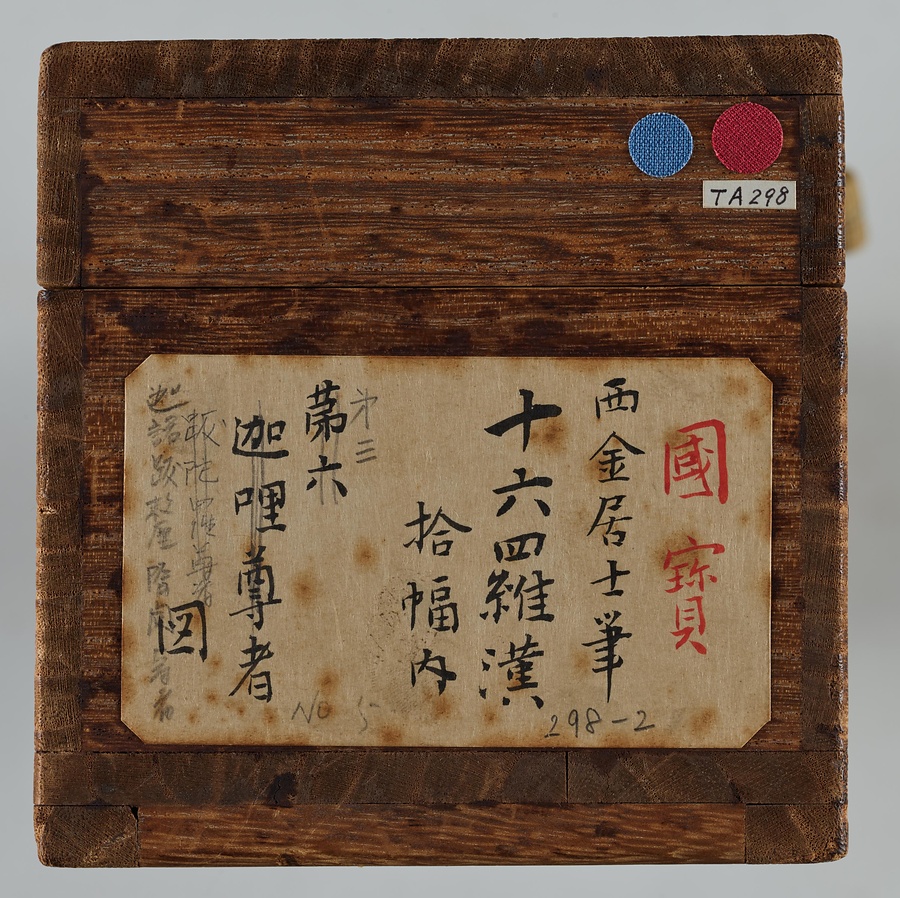 TA298
國寳
西金居士筆
十六四維漢
拾幅内
第三
第六
迦哩尊者
図
跋陀羅尊者
298-2
No 5